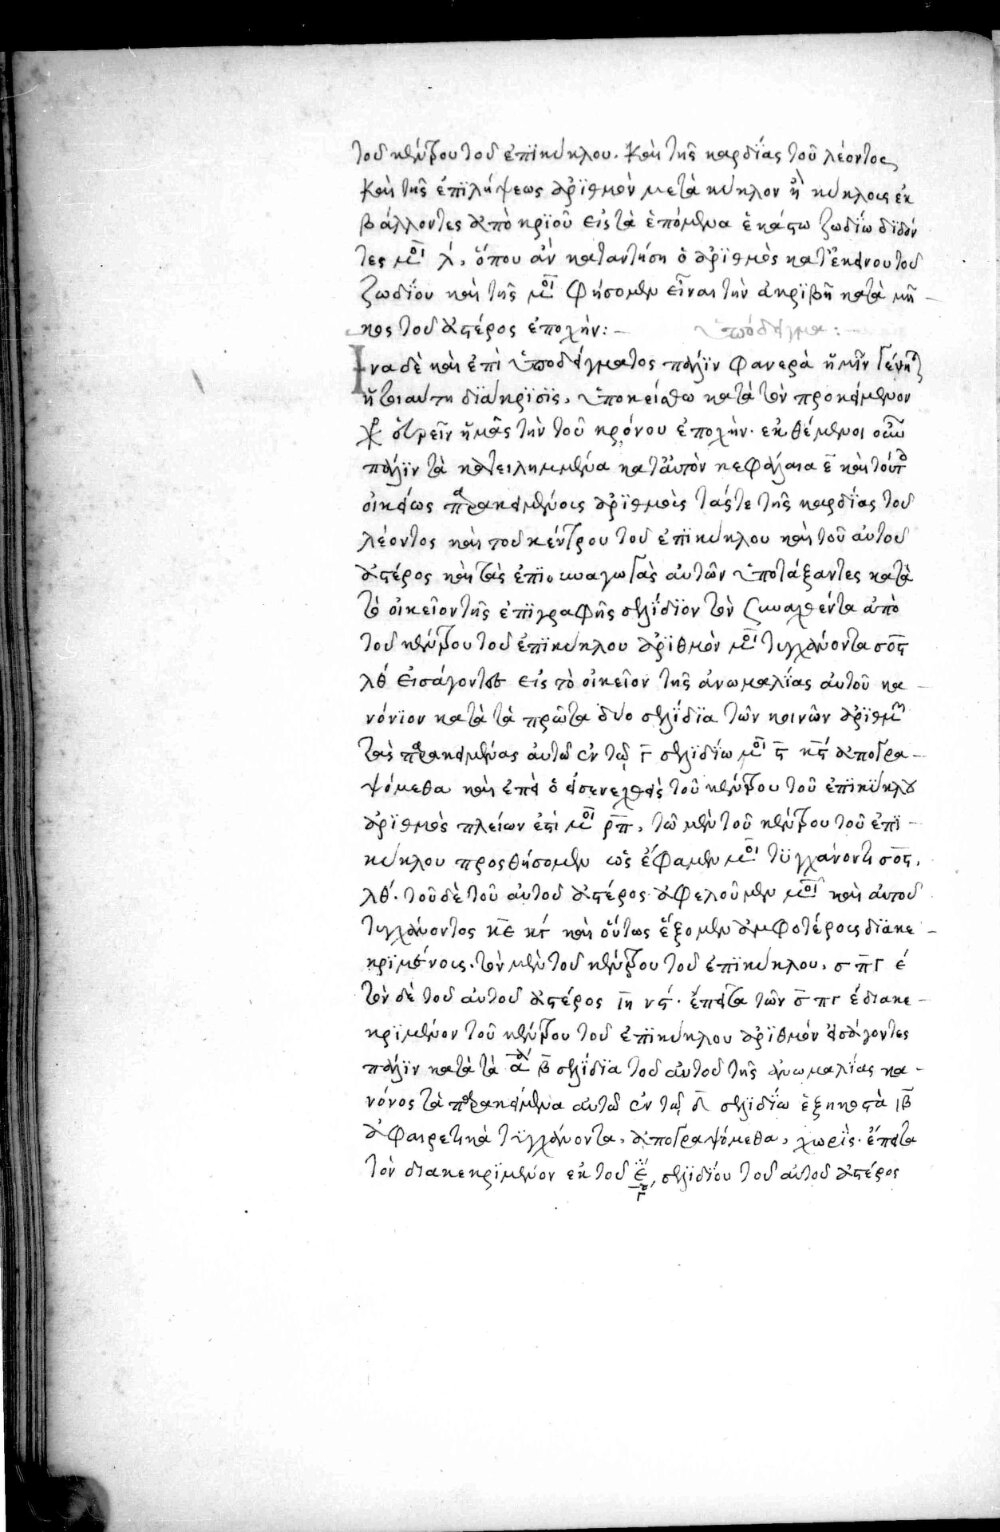 τοῦ κέντρου τοῦ ἐπϊκύκλου. καὶ τῆς καρδίας τοῦ λέοντος
καὶ τῆς ἐπϊλήψεως ἀρϊθμὸν μετὰ κύκλον ἢ κύκλους ἐκ
βάλλοντες ἀπὸ κρϊοῦ εἰς τὰ ἑπόμενα ἑκάστω ζωδίω δϊδόν
τες μοι λ̄, ὅπου ἂν καταντήση ὁ ἀρϊθμὸς κατ' ἐκείνου τοῦ
ζωδίου καὶ τῆς μοι φήσομεν εἶναι τὴν ἀκρϊβῆ κατὰ μῆ -
κος τοῦ ἀστέρος ἐποχήν: - ὑπόδειγμα: -
Ἵνα δὲ καὶ ἐπὶ ὑποδείγματος πάλϊν φανερὰ ἡμῖν γένητ
ἡ τοιαύτη δϊάκρϊσϊς, ὑποκείσθω κατὰ τὸν προκείμενον
χρ εὑρεῖν ἡμᾶς τὴν τοῦ κρόνου ἐποχήν. ἐκθέμενοι οὖν
πάλϊν τὰ κατειλημμένα κατ' αὐτὸν κεφάλαια ε̄ καὶ τούτ
οἰκείως παρακειμένοις ἀρϊθμοὶς τάς τε τῆς καρδίας τοῦ
λέοντος καὶ τοῦ κέντρου τοῦ ἐπϊκύκλου καὶ τοῦ αὐτοῦ
ἀστέρος καὶ τὰς ἐπϊσυναγωγὰς αὐτῶν ὑποτάξαντες κατὰ
τὸ οἰκεῖον τῆς ἐπϊγραφῆς σελίδϊον τὸν συναχθέντα ἀπὸ
τοῦ κέντρου τοῦ ἐπϊκύκλου ἀρϊθμὸν μοι τυγχάνοντα σος̄
λθ εἰσάγοντες εἰς τὸ οἰκεῖον τῆς ἀνωμαλίας αὐτοῦ κα -
νόνϊον κατὰ τὰ πρῶτα δύο σελίδϊα τῶν κοινῶν ἀρϊθμῶν
τὰς παρακειμένας αὐτῶ ἐν τῶ γ̄ σελϊδίω μοι ς̄ κς̄ ἀπογρα -
ψόμεθα καὶ ἐπεὶ ὁ εἰσενεχθεὶς τοῦ κέντρου τοῦ ἐπϊκύκλου
ἀρϊθμὸς πλείων ἐστὶ μοι ρπ̄, τῶ μὲν τοῦ κέντρου τοῦ ἐπϊ -
κύκλου προσθήσομεν ὡς ἔφαμεν μοι τυγχάνοντι σος̄,
λθ. τοῦ δὲ τοῦ αὐτοῦ ἀστέρος ἀφελοῦμεν μοι καὶ αὐτοῦ
τυγχάνοντος κ̄ε κγ καὶ οὕτως ἕξομεν ἀμφοτέρους δϊακε -
κρϊμένους. τὸν μὲν τοῦ κέντρου τοῦ ἐπϊκύκλου, σπ̄γ ε
τὸν δὲ τοῦ αὐτοῦ ἀστέρος ῑη νς. ἔπειτα τῶν σ̄πγ ε διακε -
κρϊμένον τοῦ κέντρου τοῦ ἐπϊκύκλου ἀρϊθμὸν εἰσάγοντες
πάλϊν κατὰ τὰ ᾱ β̄ σελίδϊα τοῦ αὐτοῦ τῆς ἀνωμαλίας κα -
νόνος τὰ παρακείμενα αὐτῶ ἐν τῶ δ̄ σελϊδίω ἑξηκοστὰ ιβ̄
ἀφαιρετικὰ τυγχάνοντα, ἀπογραψόμεθα, χωρὶς. ἔπειτα
τὸν διακεκρϊμένον ἐκ τοῦ ε̄, σελϊδίου τοῦ αὐτοῦ ἀστέρος